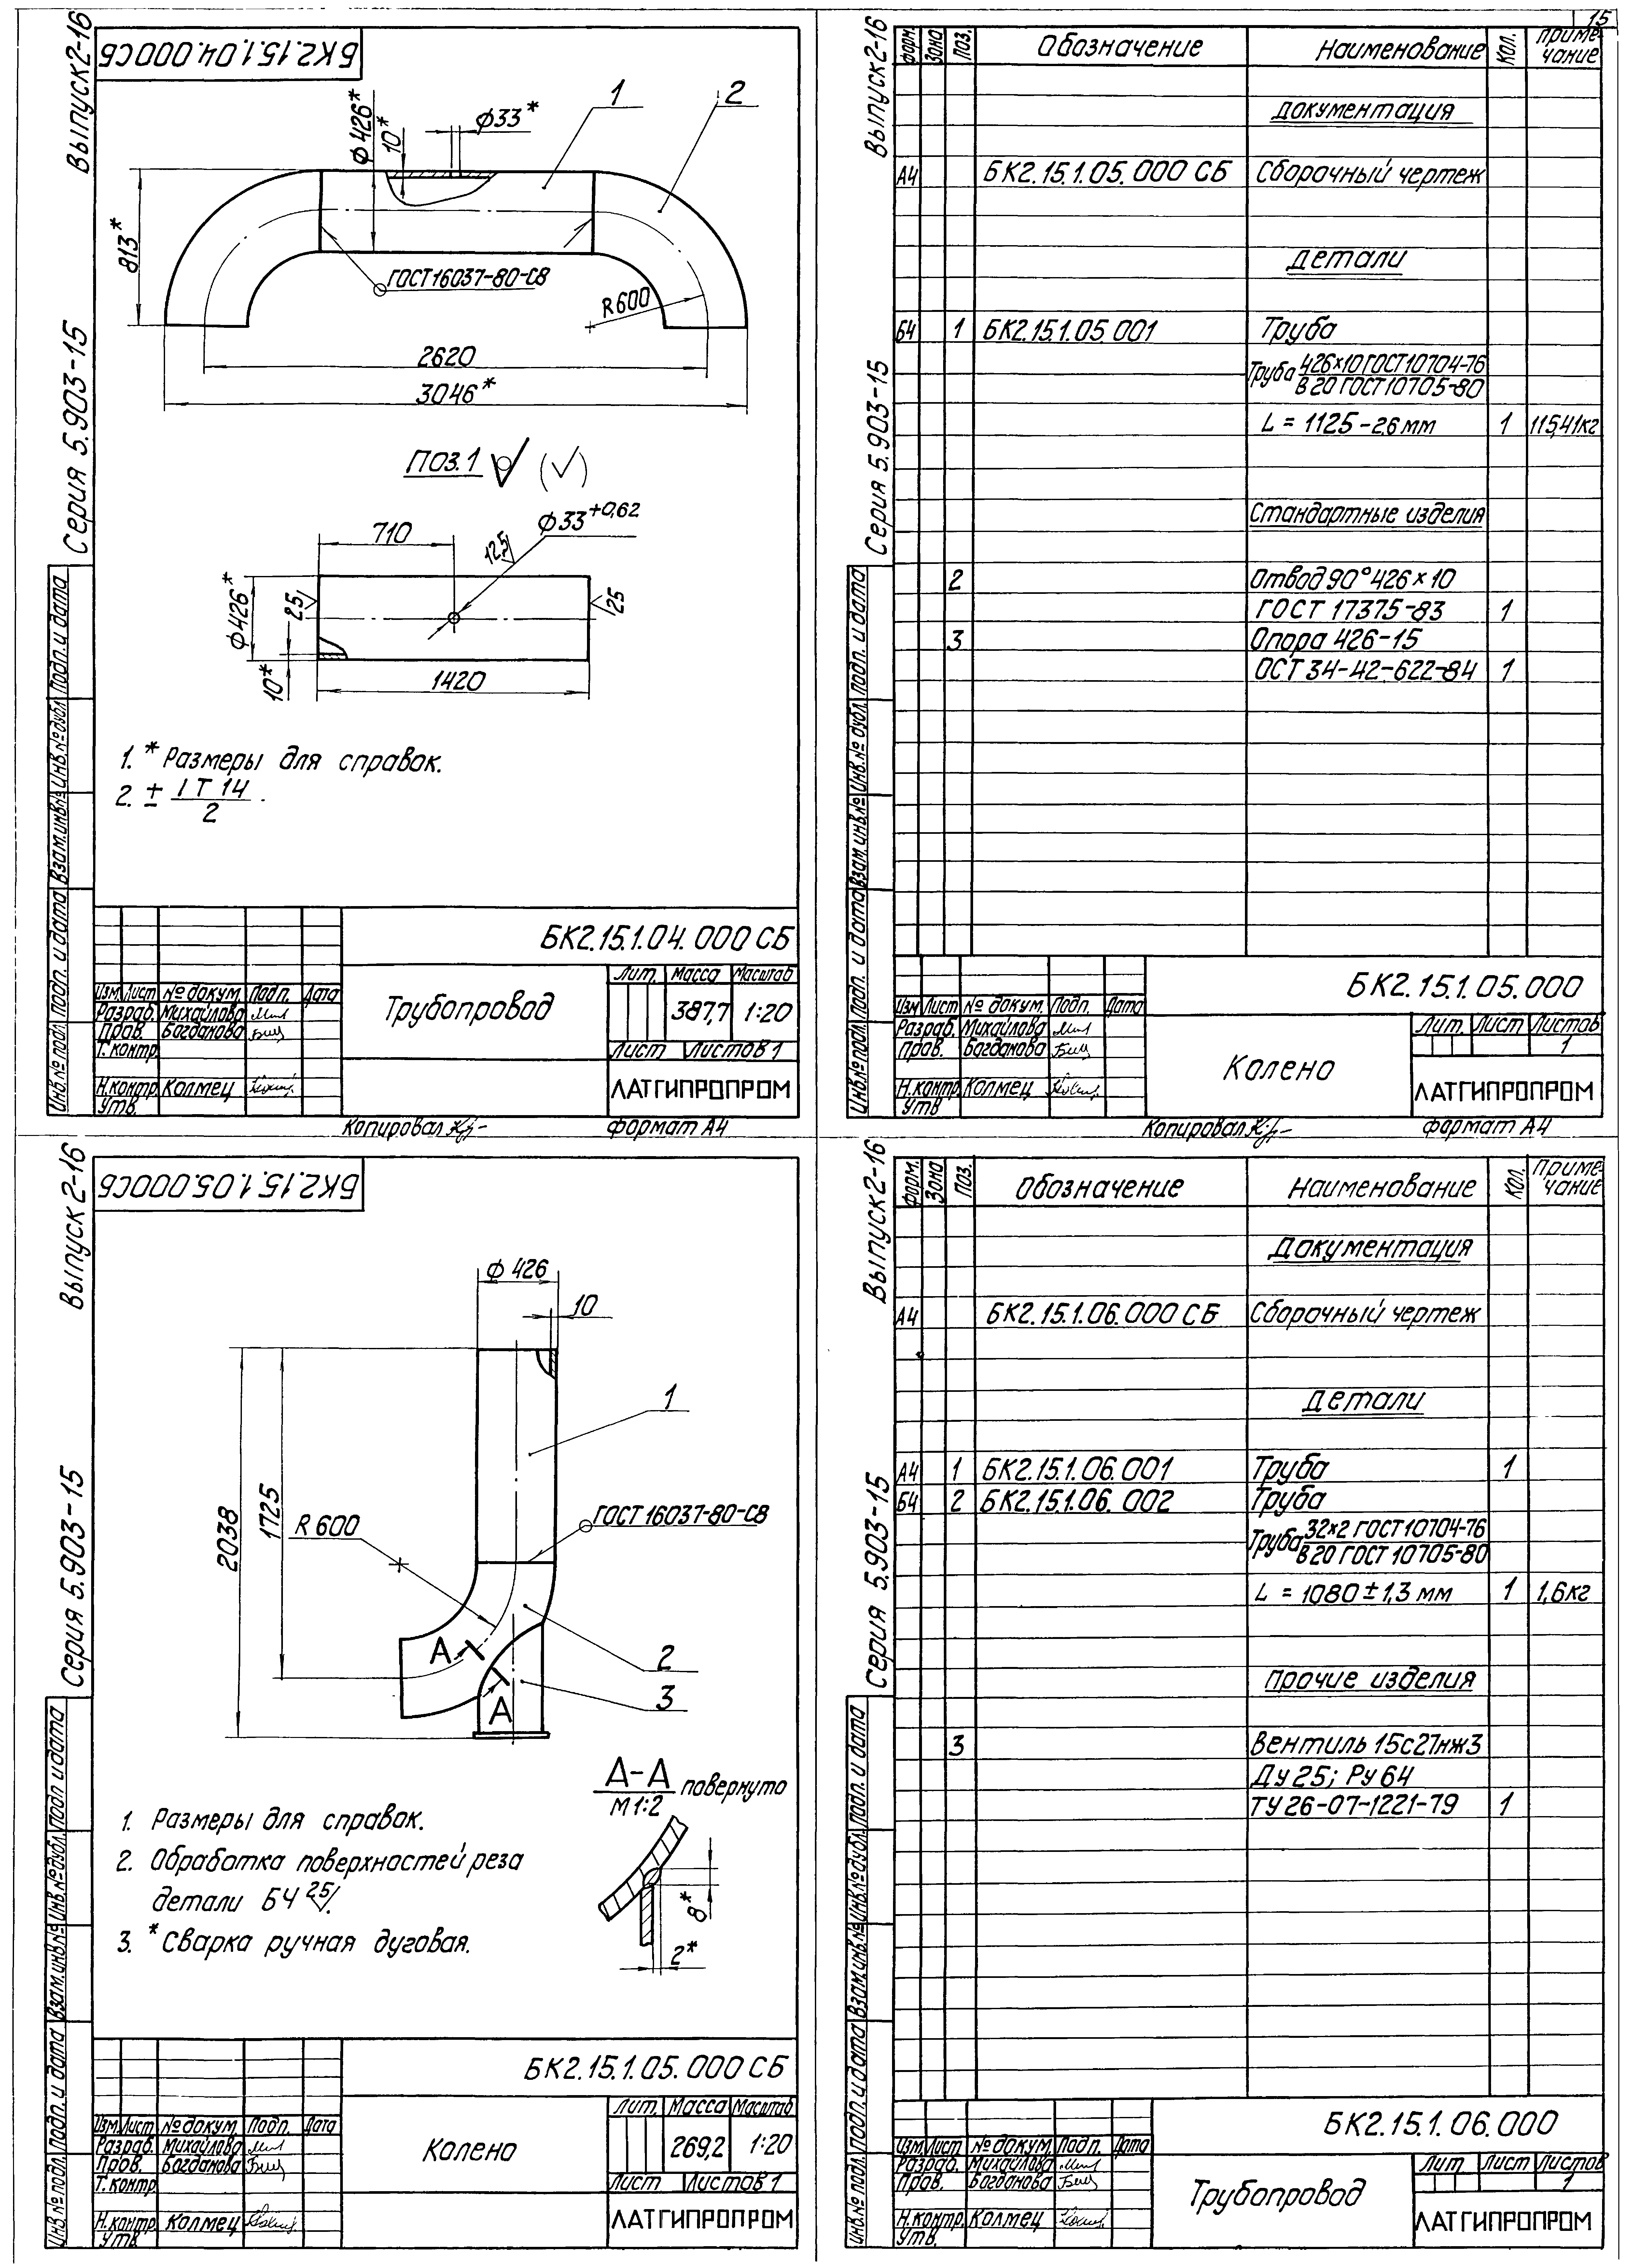 15
Выпуск 2-16
Серия 5.903-15
БК2.15.1.04.000СБ
ϕ426*
10*
ϕ33*
1
2
813*
ГОСТ16037-80-С8
R600
2620
3046*
Поз.1
(√)
710
ϕ33+0,62
12,5
ϕ426*
25
25
10*
1420
1. * Размеры для справок.
2. ± IT 14
2
БК2.15.1.04.000 СБ
Лит. Масса Масштаб
Изм. Лист № докум. Подп. Дата
Разраб. Михайлова
Пров. Богданова
Т. контр.
Трубопровод
387,7 1:20
Лист Листов 1
Н.контр. Колмец
Утв.
ЛАТГИПРОПРОМ
Копировал
Формат А4
Инв.№ подл. Подп. и дата Взам.инв.№ Инв.№ дубл. Подп. и дата
Выпуск 2-16
Серия 5.903-15
Форм. Зона Поз. Обозначение Наименование Кол. Приме-
чание
Документация
А4 БК2.15.1.05.000 СБ Сборочный чертеж
Детали
Б4 1 БК2.15.1.05.001 Труба
Труба 426×10 ГОСТ10704-76
В20 ГОСТ10705-80
L = 1125-2,6 мм 1 115,41кг
Стандартные изделия
2 Отвод 90° 426×10
ГОСТ 17375-83 1
3 Опора 426-15
ОСТ 34-42-622-84 1
БК2.15.1.05.000
Изм. Лист № докум. Подп. Дата
Разраб. Михайлова
Пров. Богданова
Колено
Лит. Лист Листов
1
Н.контр. Колмец
Утв
ЛАТГИПРОПРОМ
Копировал
Формат А4
Инв.№ подл. Подп. и дата Взам.инв.№ Инв.№ дубл. Подп. и дата
Выпуск 2-16
Серия 5.903-15
БК2.15.1.05.000СБ
ϕ426
10
1
2038
1725
R600
ГОСТ 16037-80-С8
А
А
2
3
А-А повернуто
М1:2
8*
2*
1. Размеры для справок.
2. Обработка поверхностей реза
детали БЧ 25/.
3. * Сварка ручная дуговая.
БК2.15.1.05.000 СБ
Лит. Масса Масштаб
Изм. Лист № докум. Подп. Дата
Разраб. Михайлова
Пров. Богданова
Т. контр.
Колено
269,2 1:20
Лист Листов 1
Н.контр. Колмец
Утв.
ЛАТГИПРОПРОМ
Инв.№ подл. Подп. и дата Взам.инв.№ Инв.№ дубл. Подп. и дата
Выпуск 2-16
Серия 5.903-15
Форм. Зона Поз. Обозначение Наименование Кол. Приме-
чание
Документация
А4 БК2.15.1.06.000 СБ Сборочный чертеж
Детали
А4 1 БК2.15.1.06.001 Труба 1
Б4 2 БК2.15.1.06.002 Труба
Труба 32×2 ГОСТ10704-76
В20 ГОСТ 10705-80
L = 1080±1,3 мм 1 1,6кг
Прочие изделия
3 Вентиль 15с27нж3
Ду 25; Ру 64
ТУ 26-07-1221-79 1
БК2.15.1.06.000
Изм. Лист № докум. Подп. Дата
Разраб. Михайлова
Пров. Богданова
Трубопровод
Лит. Лист Листов
1
Н.контр. Колмец
Утв.
ЛАТГИПРОПРОМ
Инв.№ подл. Подп. и дата Взам.инв.№ Инв.№ дубл. Подп. и дата